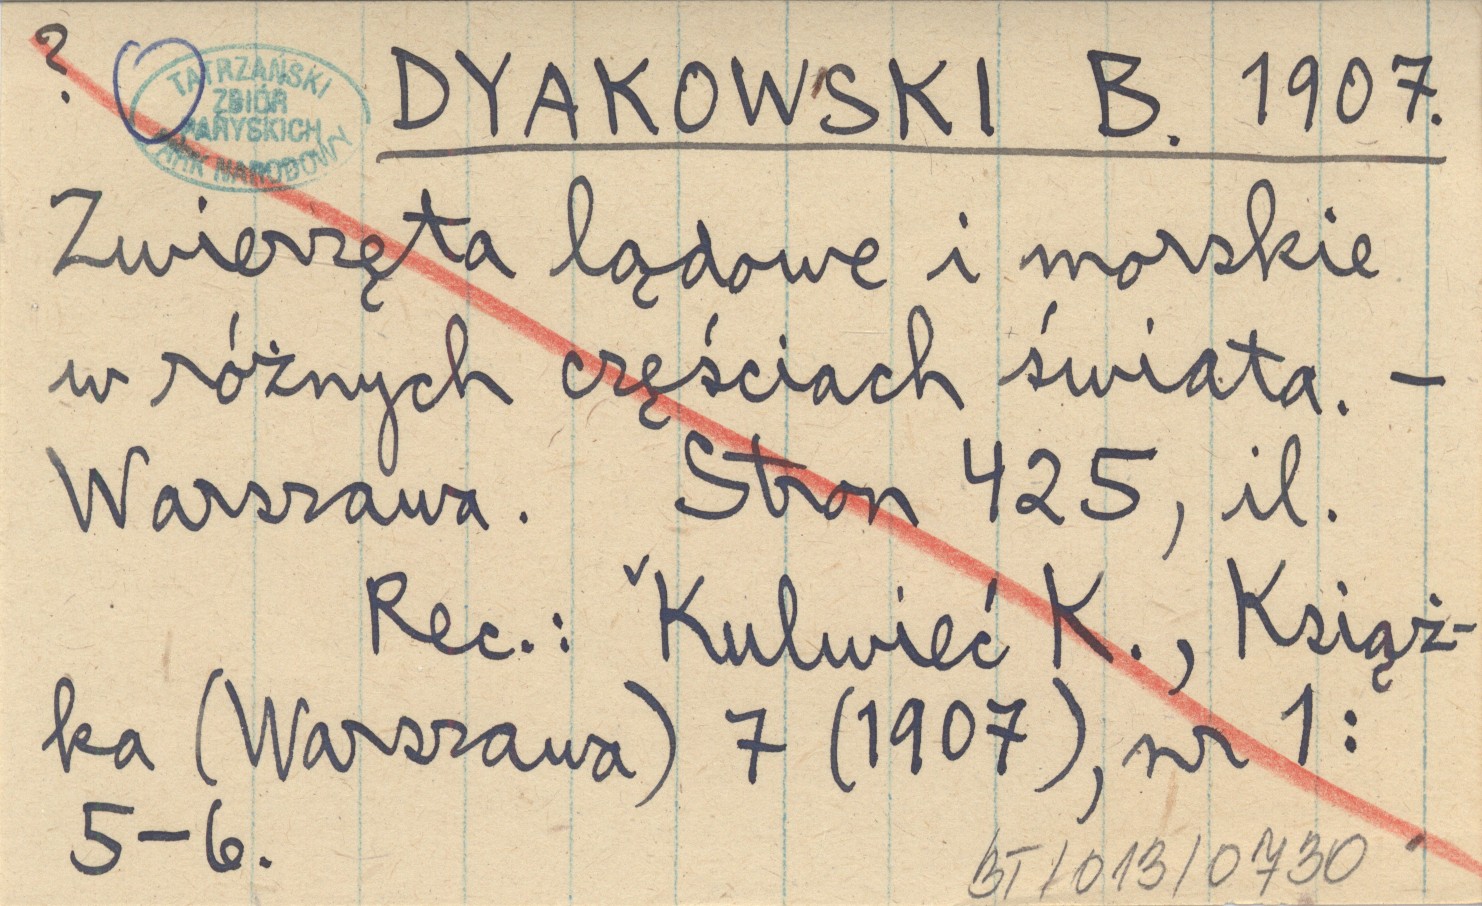 ?
TATRZAŃSKI
ZBIÓR
PARYSKICH
PARK NARODOWY
DYAKOWSKI B. 1907.
Zwierzęta lądowe i morskie
w różnych częściach świata. –
Warszawa. Stron 425, il.
Rec.: ˇKulwieć K., Książ-
ka (Warszawa) 7 (1907), nr 1:
5–6.
BT/013/0730